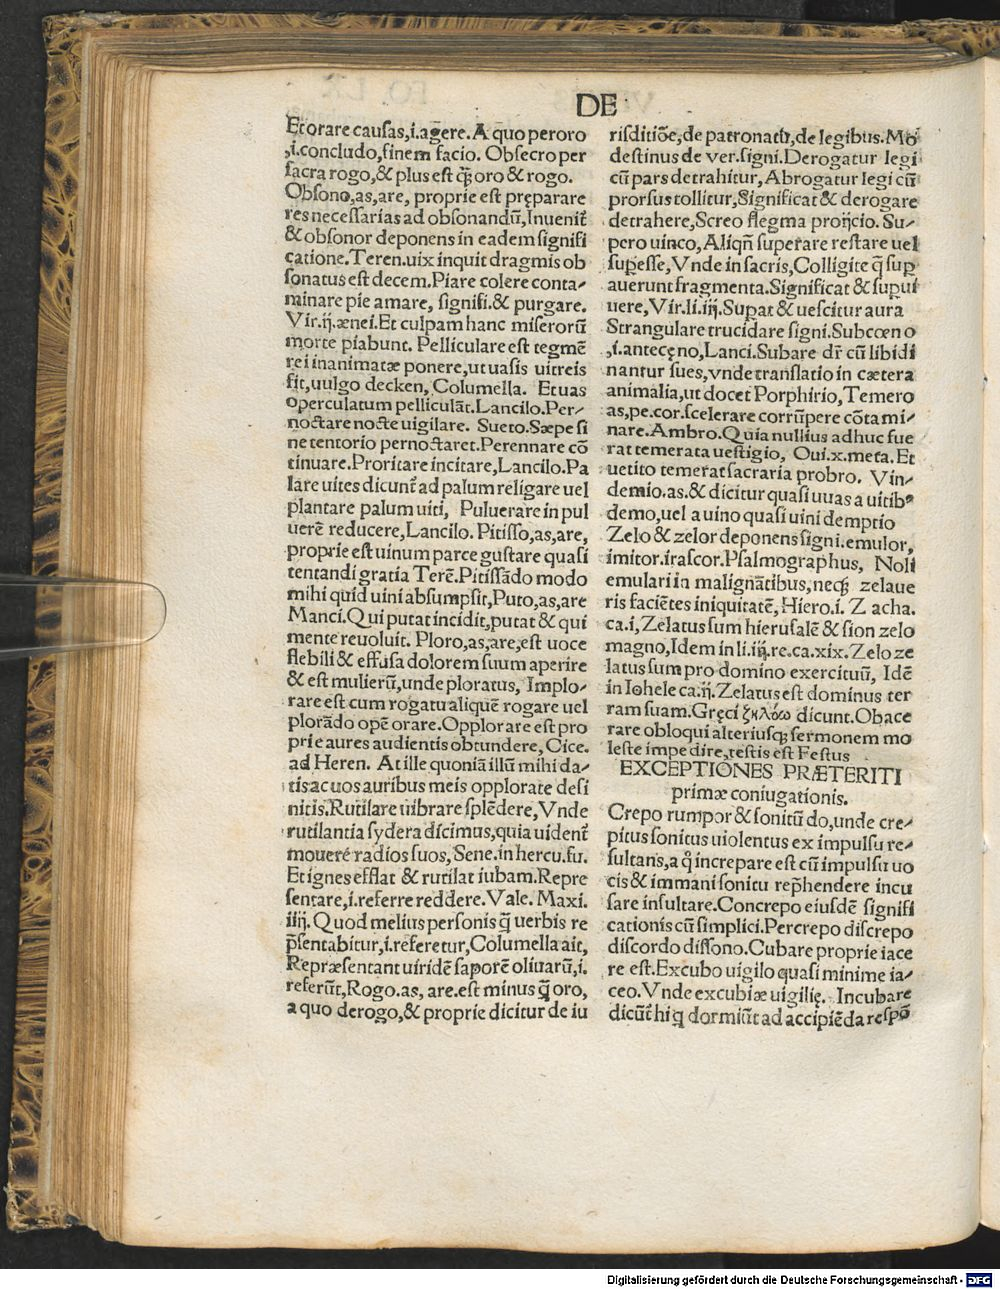 DE
Et orare causas,.i.agẽre. A quo peroro
,i.concludo,finem facio. Obsecro per
sacra rogo,& plus est q̃ȝ oro & rogo.
Obsono,as,are, proprie est pręparare
res necessarias ad obsonandũ,Inuenit̃
& obsonor deponens in eadem signifi
catione.Teren.uix inquit dragmis ob
sonatus est decem.Piare colere conta⸗
minare pie amare, signifi.& purgare.
Vir.ij.ænei.Et culpam hanc miserorũ
morte piabunt. Pelliculare est tegmẽ
rei inanimatæ ponere,ut uasis uitreis
fit,uulgo decken, Columella. Et uas
operculatum pelliculãt.Lancilo.Per⸗
noctare nocte uigilare. Sueto.Sæpe si
ne tentorio pernoctaret.Perennare cõ
tinuare.Proritare incitare,Lancilo.Pa
lare uites dicunt̃ ad palum religare uel
plantare palum uiti, Puluerare in pul
uerẽ reducere,Lancilo. Pitisso,as,are,
proprie est uinum parce gustare quasi
tentandi gratia Terẽ.Pitissãdo modo
mihi quid uini absumpsit,Puto,as,are
Manci.Qui putat incidit,putat & qui
mente reuoluit. Ploro,as,are,est uoce
flebili & effusa dolorem suum aperire
& est mulierũ,unde ploratus, Implo⸗
rare est cum rogatu aliquẽ rogare uel
plorãdo opẽ orare.Opplorare est pro
prie aures audientis obtundere, Cice.
ad Heren. At ille quoniã illũ mihi da⸗
tis:ac uos auribus meis opplorate desi
nitis.Rutilare uibrare splẽdere,Vnde
rutilantia sydera dicimus,quia uident̃
mouere radios suos, Sene.in hercu.fu.
Et ignes efflat & rutilat iubam.Repre
sentare,i.referre reddere. Vale. Maxi.
iiij. Quod melius personis q̃ȝ uerbis re
p̃sentabitur,i.referetur,Columella ait,
Repræsentant uiridẽ saporẽ oliuarũ,i.
referũt,Rogo.as, are.est minus q̃ȝ oro,
a quo derogo,& proprie dicitur de iu
risditiõe,de patronatu,de legibus.Mo
destinus de ver.signi.Derogatur legi
cũ pars detrahitur,Abrogatur legi cũ
prorsus tollitur,Significat & derogare
detrahere,Screo flegma proijcio. Su⸗
pero uinco, Aliqñ superare restare uel
supesse,Vnde in sacris,Colligite q̃ sup
auerunt fragmenta.Significat & supui
uere, Vir.li.iij.Supat & uescitur aura
Strangulare trucidare signi.Subcœno
,i.antecęno,Lanci.Subare dr̃ cũ libidi
nantur sues,vnde translatio in cætera
animalia,ut docet Porphirio, Temero
as,pe.cor.scelerare corrũpere cõtami⸗
nare.Ambro.Quia nullius adhuc fue
rat temerata uestigio, Oui.x.meta.Et
uetito temerat sacraria probro. Vin⸗
demio.as.& dicitur quasi uuas a uitibꝰ
demo,uel a uino quasi uini demptio
Zelo & zelor deponens signi.emulor,
imitor.irascor.Psalmographus, Noli
emulari in malignãtibus,neqȝ zelaue
ris faciẽtes iniquitatẽ,Hiero.i. Zacha.
ca.i,Zelatus sum hierusalẽ & sion zelo
magno,Idem in li.iij.re.ca.xix.Zelo ze
latus sum pro domino exercituũ, Idẽ
in Iohele ca.ij.Zelatus est dominus ter
ram suam.Gręci ζκλόω dicunt.Obace
rare obloqui alteriusqȝ sermonem mo
leste impedire,testis est Festus
EXCEPTIONES PRÆTERITI
primæ coniugationis.
Crepo rumpor & sonitũ do,unde cre⸗
pitus sonitus uiolentus ex impulsu re⸗
sultans,a q̊ increpare est cũ impulsu uo
cis & immani sonitu rep̃hendere incu
sare insultare.Concrepo eiusdẽ signifi
cationis cũ simplici.Percrepo discrepo
discordo dissono.Cubare proprie iace
re est.Excubo uigilo quasi minime ia⸗
ceo.Vnde excubiæ uigilię. Incubare
dicũt̃ hi q̃ dormiũt ad accipiẽda respõ
Digitalisierung gefördert durch die Deutsche Forschungsgemeinschaft - DFG